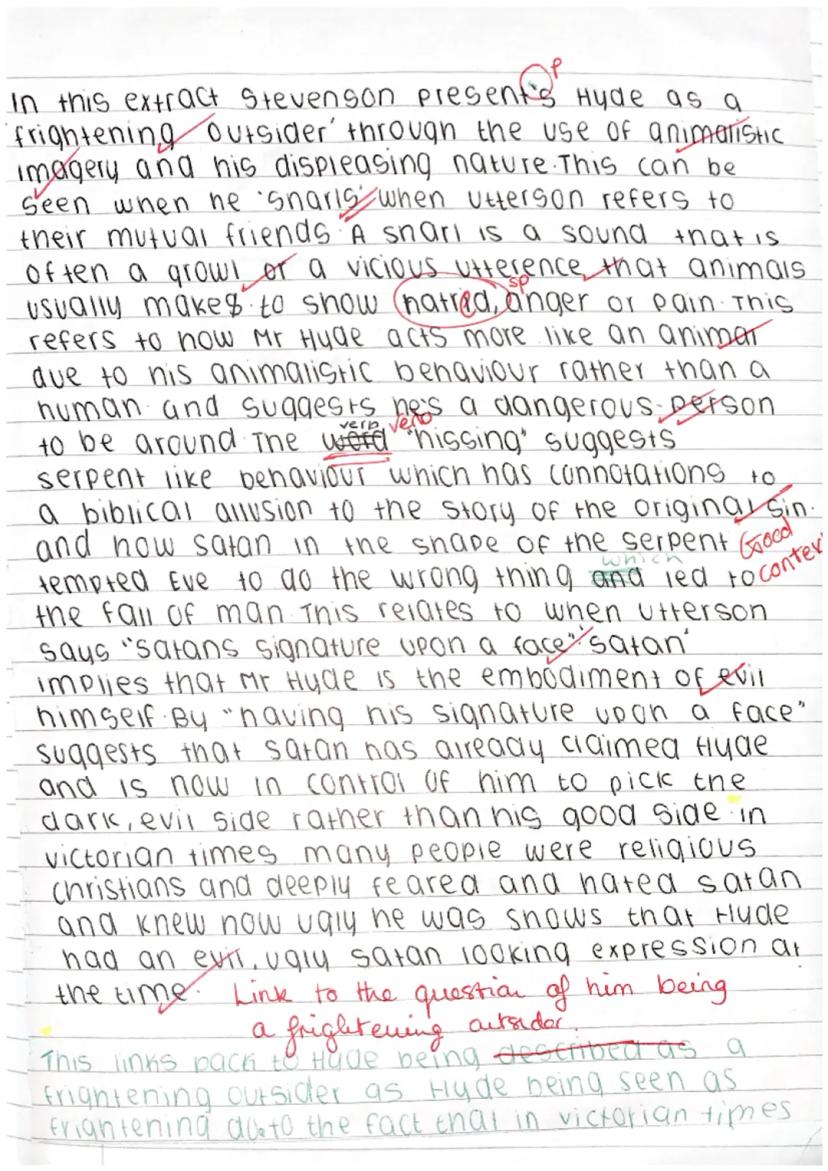 p
In this extract Stevenson present's Hyde as a
frightening outsider' through the use of animalistic
imagery and his displeasing nature. This can be
seen when he 'snarls' when Utterson refers to
their mutual friends. A snarl is a sound that is
often a growl or a vicious utterence, that animals
sp
usually makes to show hatred, anger or pain. This
refers to how Mr Hyde acts more like an animal
due to his animalistic behaviour rather than a
human and suggests he's a dangerous person
verb verb
to be around. The word "hissing" suggests
serpent like behaviour which has connotations to
a biblical allusion to the story of the original sin.
and how Satan in the shape of the serpent Good
which
tempted Eve to do the wrong thing and led to contex
the fall of man. This relates to when Utterson
says "Satans signature upon a face". 'Satan'
implies that Mr Hyde is the embodiment of evil
himself. By "having his signature upon a face"
suggests that Satan has already claimed Hyde
and is now in control of him to pick the
dark, evil side rather than his good side. in
victorian times many people were religious
christians and deeply feared and hated Satan
and knew how ugly he was shows that Hyde
had an evil, ugly Satan looking expression at
the time. Link to the question of him being
a frightening outsider.
This links back to Hyde being described as a
frightening outsider as Hyde being seen as
frightening due to the fact that in victorian times